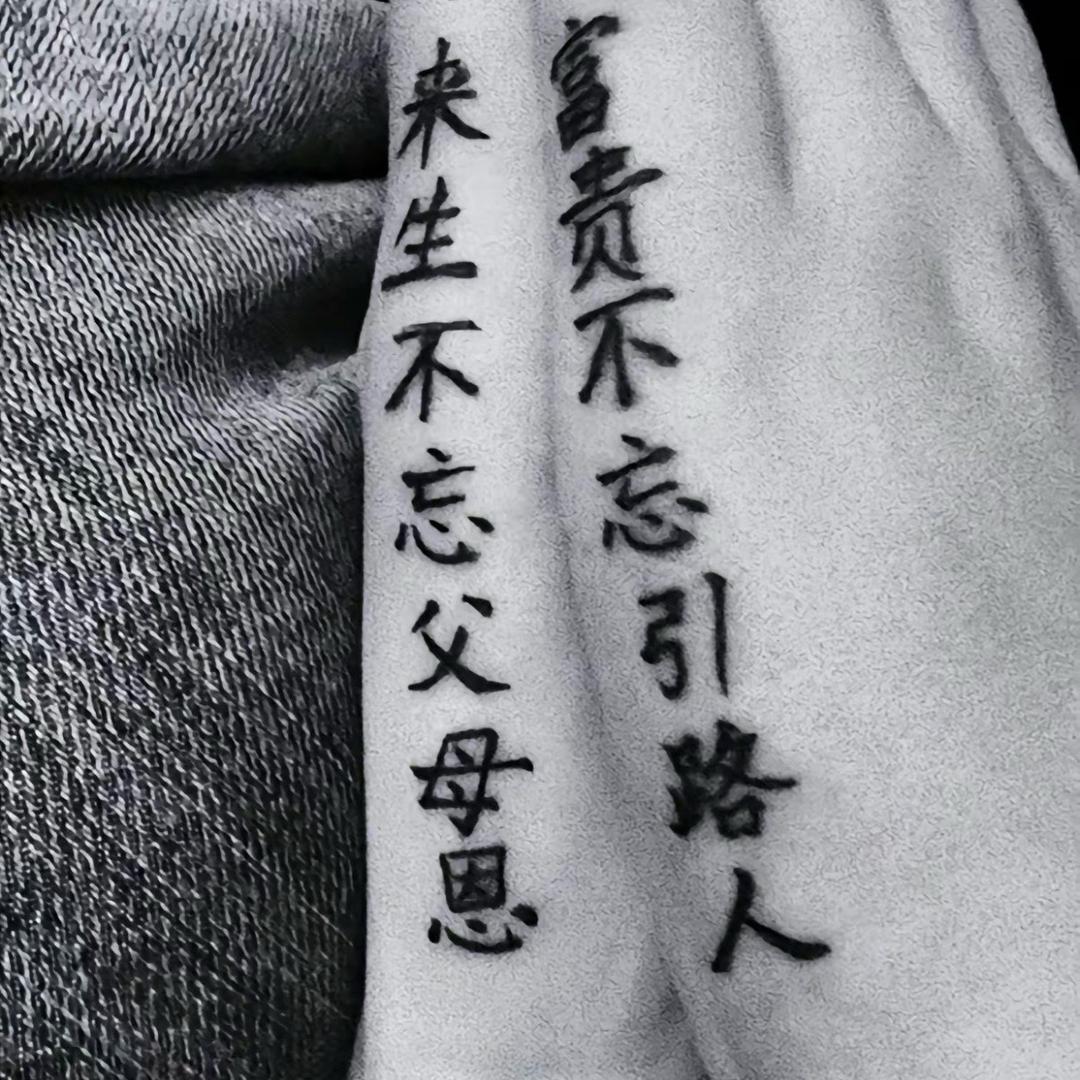 富贵不忘引路人
来生不忘父母恩